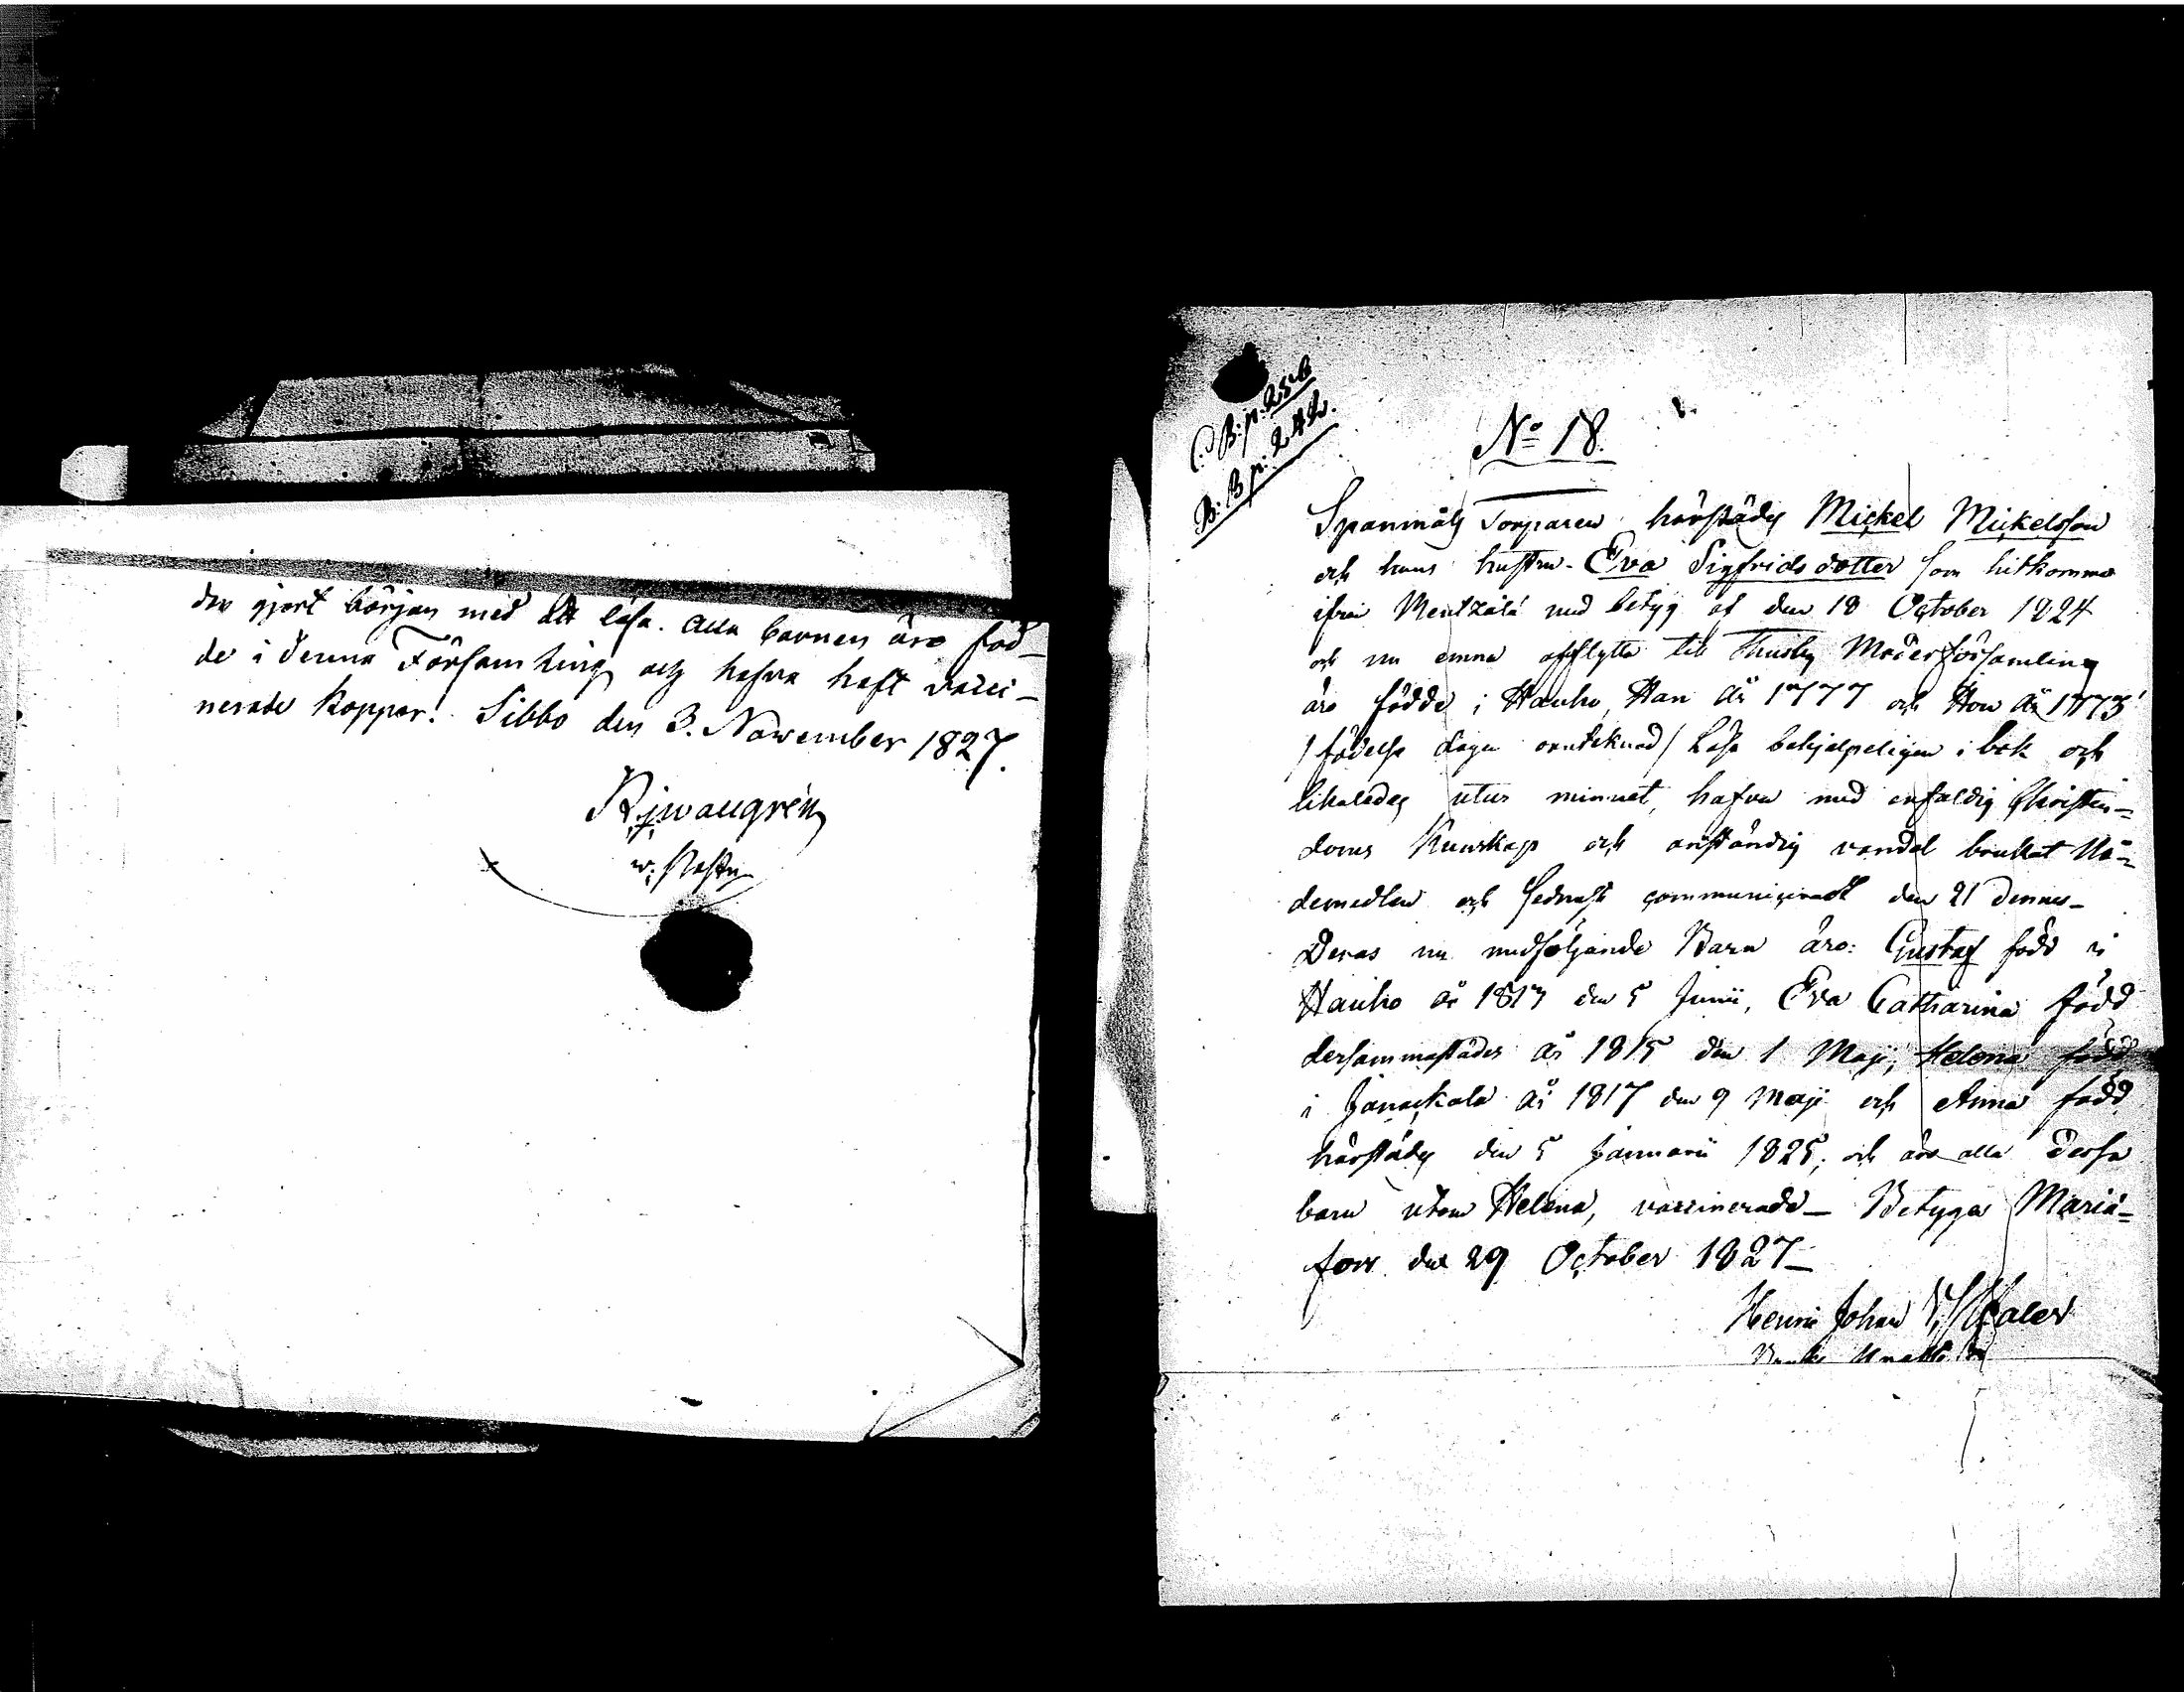 der gjort början med att läsa. Alla barnen äro föd-
de i denna Församling och hafva haft vacci-
nerade koppor. Sibbo den 3. November 1827.
C. B. p. 256
B. B p. 242.
No 18.
Spanmåls Torparen härstädes Mickel Mickelsson
och hans hustru Eva Sigfridsdotter som hitkommo
ifrån Mentzälä med betyg af den 18 October 1824
och nu ämna afflytta till Thusby Moderförsamling
äro födde i Hauho, Han år 1777 och Hon år 1773
/födelse dagen oanteknad/ Läsa behjelpeligen i bok och
likaledes utur minnet, hafva med enfaldig Christen=
doms Kunskap och anständig vandel brukat Nå=
demedlen och sednast communicerat den 21 dennes-
Deras nu medföljande Barn äro: Gustaf född i
Hauho år den 5 Junii, Eva Catharina född
dersammastädes år 1815 den 1 Maji, Helena född
i Janackala år 1817 den 9 Maji och Anna född
härstädes den 5 Januarii 1825, och äro alla dessa
barn utom Helena, vaccinerade - Betygar Mariä=
fors den 29 October 1827-
Johan